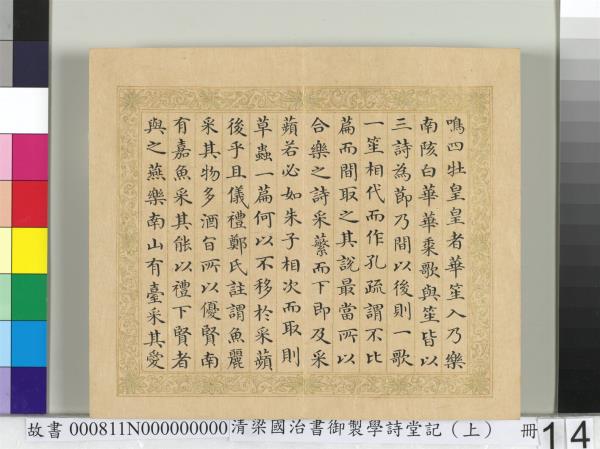 鳴四牡皇皇者華笙入乃樂
南陔白華華黍歌與笙皆以
三詩為節乃間以後則一歌
一笙相代而作孔疏謂不比
篇而間取之其說最當所以
合樂之詩采蘩而下即及采
蘋若必如朱子相次而取則
草蟲一篇何以不移於采蘋
後乎且儀禮鄭氏註謂魚麗
采其物多酒旨所以優賢南
有嘉魚采其能以禮下賢者
與之燕樂南山有臺采其愛
故書 000811N000000000 清梁國治書御製學詩堂記（上） 冊 14